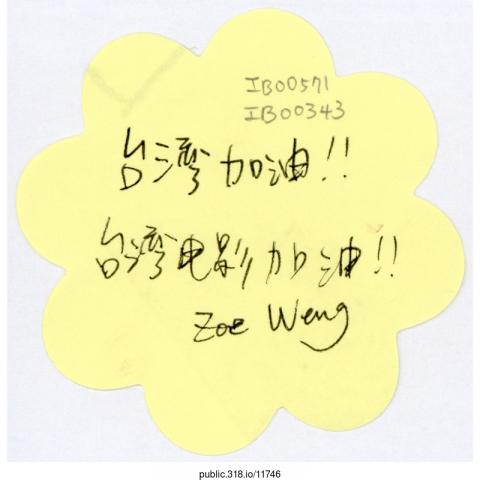 IB00571
IB00343
台湾加油!!
台湾电影加油!!
Zoe Weng
public.318.io/11746